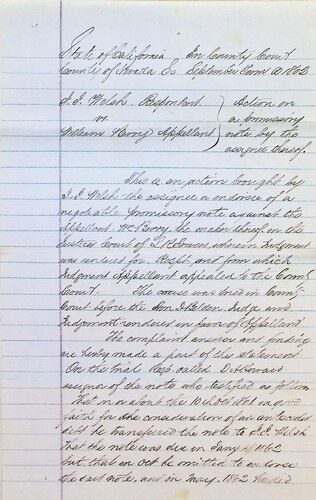 State of California In County Court
County of Nevada Ss September Term AD 1862
J. J. Welsh Respondant
vs.
William Henry Appellant
Action on
a promissory
note by the
assignee thereof.
This is an action brought by
J. J. Welsh the assignee or endorsee of a
negotiable promissory note against the
Appellant Wm Henry the maker thereof in the
Justice Court of wherein Judgment
was rendered for Respt and from which
Judgment Appellant appealed to the County
Court. The cause was tried in County
Court before the Hon. D Belden Judge and
Judgment rendered in favor of Appellant
The complaint answer and finding
are hereby made a part of this statement
On the trial Resp called
assignor of the note who testified as follows
That on or about the 10th Oct 1861 in good
faith for the consideration of an antecedent
debt he transfered the note to J. J. Welsh
That the note was due in Jany 1862
but that in Oct he omitted to endorse
the said note, and in may 1862